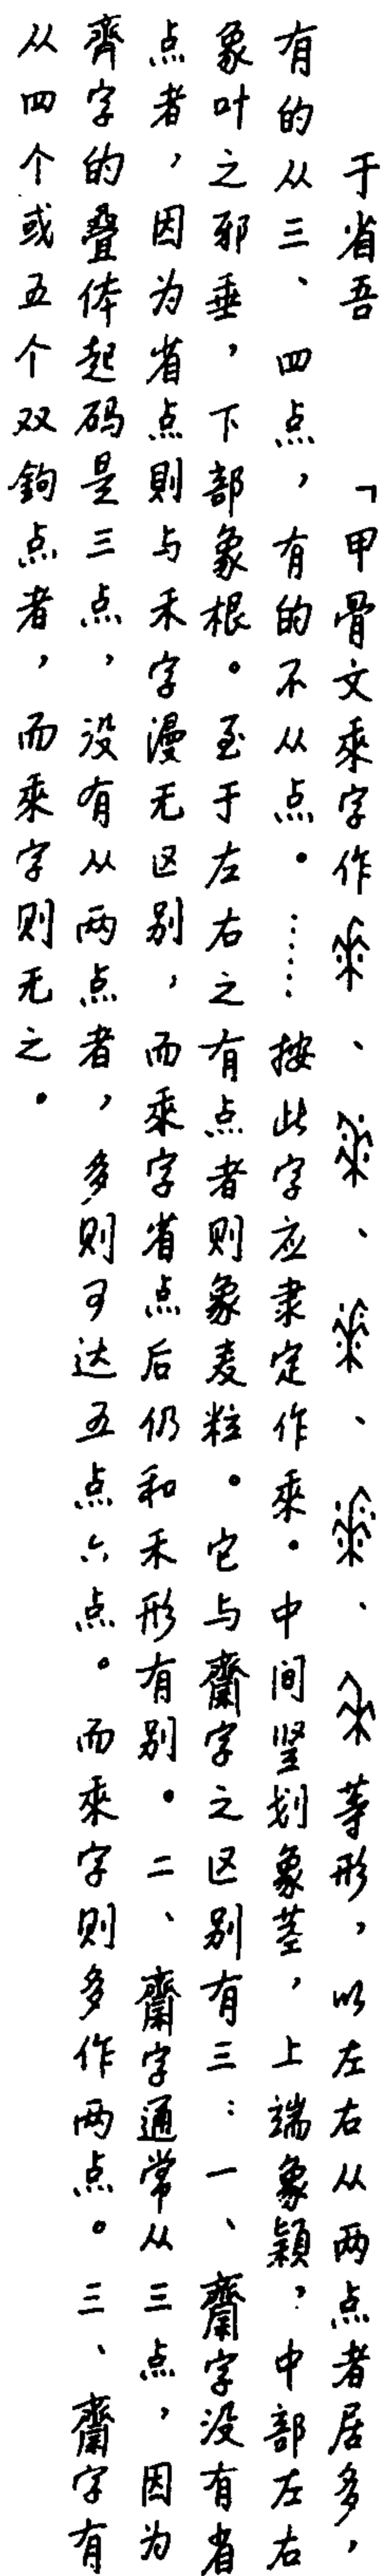 于省吾 「甲骨文乘字作、、、、等形，以左右从两点者居多，
有的从三、四点，有的不从点。……按此字应隶定作乘。中间竖划象茎，上端象颖，中部左右
象叶之邪垂，下部象根。至于左右之有点者则象麦粒。它与齋字之区别有三：一、齋字没有省
点者，因为省点則与禾字漫无区别，而乘字省点后仍和禾形有别。二、齋字通常从三点，因为
齊字的叠体起码是三点，没有从两点者，多则可达五点六点。而乘字则多作两点。三、齋字有
从四个或五个双鉤点者，而乘字则无之。